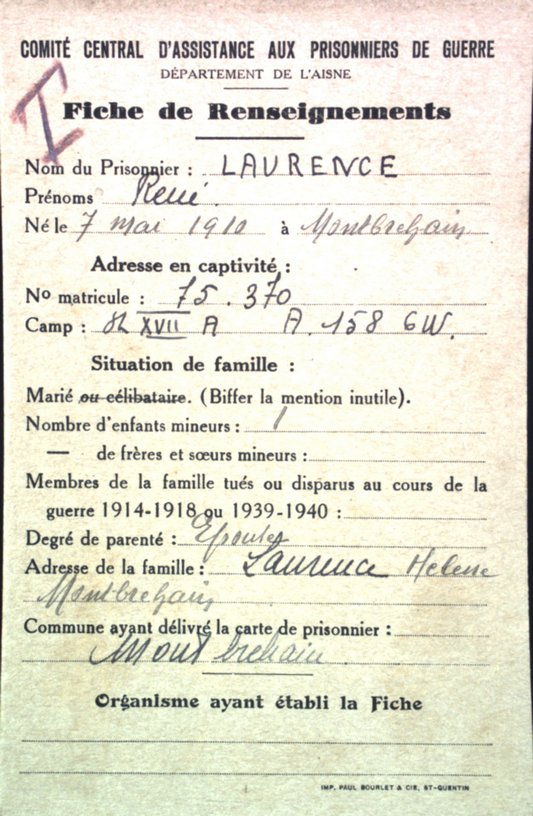 COMITÉ CENTRAL D'ASSISTANCE AUX PRISONNIERS DE GUERRE
DÉPARTEMENT DE L'AISNE
I
Fiche de Renseignements
Nom du Prisonnier : LAURENCE
Prénoms René.
Né le 7 mai 1910 à Montbrehain
Adresse en captivité :
No matricule : 75.370
Camp : XVII A A. 158 GW.
Situation de famille :
Marié ou célibataire. (Biffer la mention inutile).
Nombre d'enfants mineurs : 1
— de frères et sœurs mineurs :
Membres de la famille tués ou disparus au cours de la
guerre 1914-1918 ou 1939-1940 :
Degré de parenté : Epouse
Adresse de la famille : Laurence Helene
Montbrehain
Commune ayant délivré la carte de prisonnier :
Montbrehain
Organisme ayant établi la Fiche
IMP. PAUL BOURLET & CIE, ST-QUENTIN